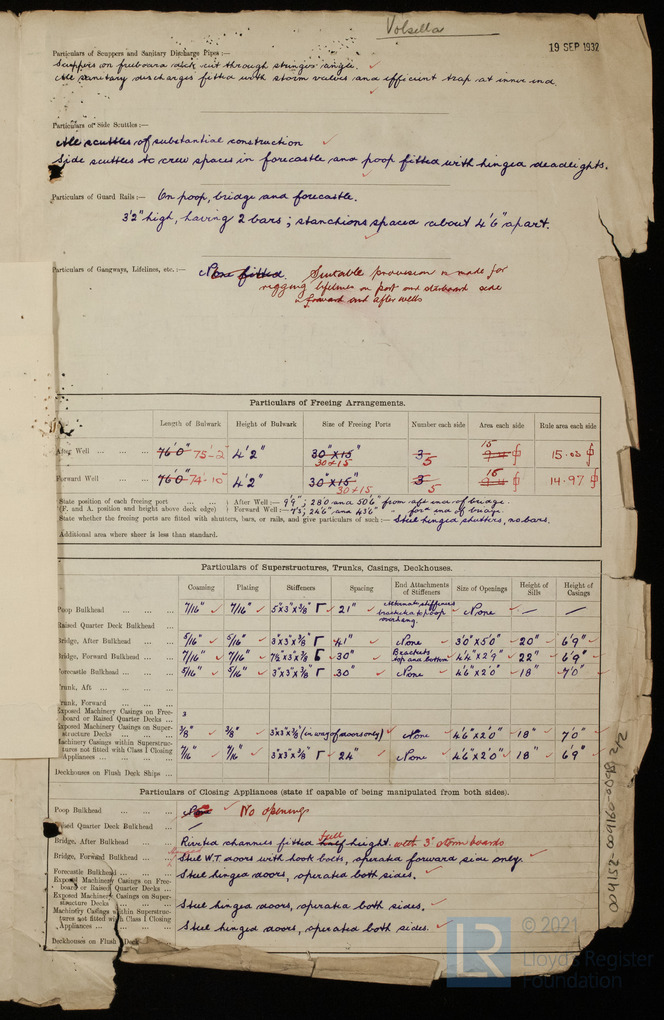 Volsella
19 SEP 1932
Particulars of Scuppers and Sanitary Discharge Pipes:—
Scuppers on freeboard deck cut through stringer angle.
All sanitary discharges fitted with storm valves and efficient trap at inner end.
Particulars of Side Scuttles:—
All scuttles of substantial construction
Side scuttles to crew spaces in forecastle and poop fitted with hinged deadlights.
Particulars of Guard Rails:— On poop, bridge and forecastle.
3'2" high, having 2 bars; stanchions spaced about 4'6" apart.
Particulars of Gangways, Lifelines, etc.:— None fitted. Suitable provision is made for
rigging lifelines on port and starboard side
in forward and after wells
Particulars of Freeing Arrangements.
Length of Bulwark Height of Bulwark Size of Freeing Ports Number each side Area each side Rule area each side
After Well 76'0" 75-2 4'2" 30" x 15" 30 x 15 3 5 15 9.4 15.03
Forward Well 76'0" 74-10 4'2" 30" x 15" 30 x 15 3 5 15 9.4 14.97
State position of each freeing port After Well:— 9'9"; 28'0 and 50'6" from aft end of bridge.
(F. and A. position and height above deck edge) Forward Well:— 7'3; 24'6" and 43'6" " for'd end of bridge.
State whether the freeing ports are fitted with shutters, bars, or rails, and give particulars of such:— Steel hinged shutters, no bars.
Additional area where sheer is less than standard.
Particulars of Superstructures, Trunks, Casings, Deckhouses.
Coaming Plating Stiffeners Spacing End Attachments of Stiffeners Size of Openings Height of Sills Height of Casings
Poop Bulkhead 7/16" 7/16" 5"x3"x3/8" 21" Alternate stiffeners bracketed to poop overhang. None — —
Raised Quarter Deck Bulkhead
Bridge, After Bulkhead 5/16" 5/16" 3"x3"x3/8" 41" None 3'0"x5'0" 20" 6'9"
Bridge, Forward Bulkhead 7/16" 7/16" 7½"x3"x3/8 30" Brackets top and bottom 4'4"x2'9" 22" 6'9"
Forecastle Bulkhead 5/16" 5/16" 3"x3"x3/8" 30" None 4'6"x2'0" 18" 7'0"
Trunk, Aft
Trunk, Forward
Exposed Machinery Casings on Freeboard or Raised Quarter Decks
Exposed Machinery Casings on Superstructure Decks 3/8" 3/8" 3"x3"x3/8" (in way of doors only) None 4'6"x2'0" 18" 7'0"
Machinery Casings within Superstructures not fitted with Class I Closing Appliances 7/16 7/16 3"x3"x3/8" 24" None 4'6"x2'0" 18" 6'9"
Deckhouses on Flush Deck Ships
Particulars of Closing Appliances (state if capable of being manipulated from both sides).
Poop Bulkhead No openings
Raised Quarter Deck Bulkhead —
Bridge, After Bulkhead Riveted channels fitted half full height. with 3" storm boards
Bridge, Forward Bulkhead Steel W.T. doors with hook bolts, operated forward side only.
Forecastle Bulkhead Steel hinged doors, operated both sides.
Exposed Machinery Casings on Freeboard or Raised Quarter Decks
Exposed Machinery Casings on Superstructure Decks Steel hinged doors, operated both sides.
Machinery Casings within Superstructures not fitted with Class I Closing Appliances Steel hinged doors, operated both sides.
Deckhouses on Flush Deck
LR
© 2021
Lloyd's Register
Foundation